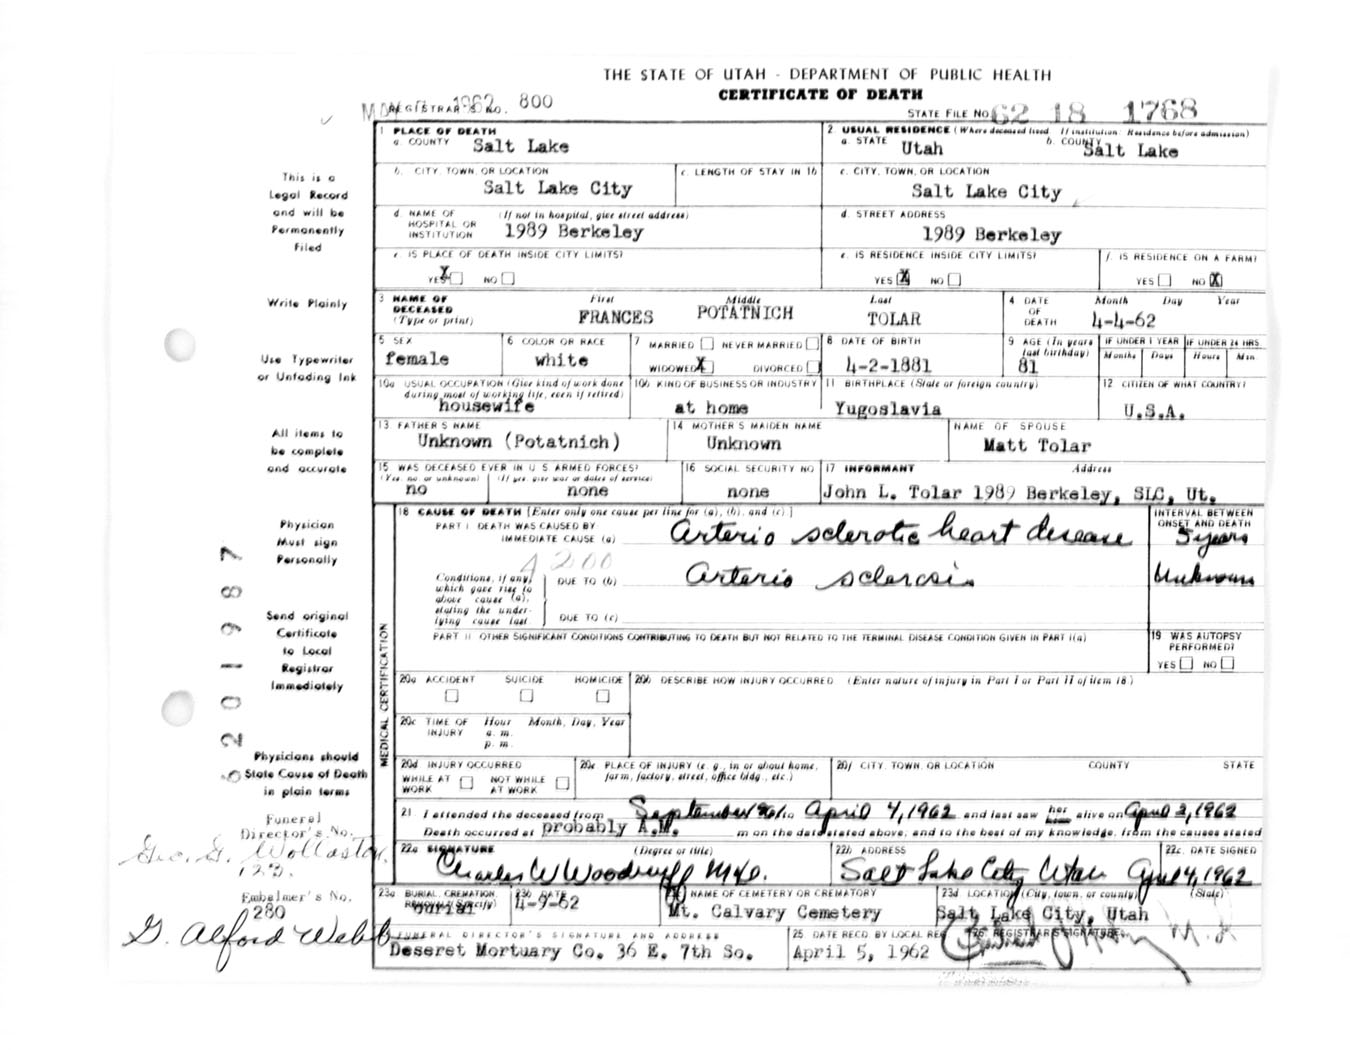 THE STATE OF UTAH - DEPARTMENT OF PUBLIC HEALTH
CERTIFICATE OF DEATH
REGISTRAR'S NO. 800
1962
STATE FILE NO. 62 18 1768
1 PLACE OF DEATH
a. COUNTY Salt Lake
2. USUAL RESIDENCE (Where deceased lived. If institution: Residence before admission)
a. STATE Utah b. COUNTY Salt Lake
b. CITY, TOWN, OR LOCATION Salt Lake City
c. LENGTH OF STAY IN 1b
c. CITY, TOWN, OR LOCATION Salt Lake City
d. NAME OF HOSPITAL OR INSTITUTION (If not in hospital, give street address) 1989 Berkeley
d. STREET ADDRESS 1989 Berkeley
e. IS PLACE OF DEATH INSIDE CITY LIMITS?
YES X NO
e. IS RESIDENCE INSIDE CITY LIMITS?
YES X NO
f. IS RESIDENCE ON A FARM?
YES NO X
3 NAME OF DECEASED (Type or print)
First Middle Last
FRANCES POTATNICH TOLAR
4 DATE OF DEATH Month Day Year
4-4-62
5 SEX female
6 COLOR OR RACE white
7 MARRIED NEVER MARRIED
WIDOWED X DIVORCED
8 DATE OF BIRTH 4-2-1881
9 AGE (In years last birthday) 81
IF UNDER 1 YEAR Months Days
IF UNDER 24 HRS. Hours Min.
10a USUAL OCCUPATION (Give kind of work done during most of working life, even if retired) housewife
10b KIND OF BUSINESS OR INDUSTRY at home
11 BIRTHPLACE (State or foreign country) Yugoslavia
12 CITIZEN OF WHAT COUNTRY? U.S.A.
13 FATHER'S NAME Unknown (Potatnich)
14 MOTHER'S MAIDEN NAME Unknown
NAME OF SPOUSE Matt Tolar
15 WAS DECEASED EVER IN U S ARMED FORCES?
(Yes, no, or unknown) (If yes, give war or dates of service)
no none
16 SOCIAL SECURITY NO none
17 INFORMANT Address
John L. Tolar 1989 Berkeley, SLC, Ut.
18 CAUSE OF DEATH [Enter only one cause per line for (a), (b), and (c).]
PART I DEATH WAS CAUSED BY
IMMEDIATE CAUSE (a) Arterio sclerotic heart disease
INTERVAL BETWEEN ONSET AND DEATH
5 years
4200
Conditions, if any, which gave rise to above cause (a), stating the underlying cause last
DUE TO (b) Arterio sclerosis Unknown
DUE TO (c)
PART II OTHER SIGNIFICANT CONDITIONS CONTRIBUTING TO DEATH BUT NOT RELATED TO THE TERMINAL DISEASE CONDITION GIVEN IN PART I(a)
19 WAS AUTOPSY PERFORMED?
YES NO
MEDICAL CERTIFICATION
20a ACCIDENT SUICIDE HOMICIDE
20b DESCRIBE HOW INJURY OCCURRED (Enter nature of injury in Part I or Part II of item 18)
20c TIME OF INJURY Hour Month, Day, Year
a. m.
p. m.
20d INJURY OCCURRED
WHILE AT WORK NOT WHILE AT WORK
20e PLACE OF INJURY (e. g., in or about home, farm, factory, street, office bldg., etc.)
20f CITY, TOWN, OR LOCATION COUNTY STATE
21 I attended the deceased from September 1961 to April 4, 1962 and last saw her alive on April 2, 1962
Death occurred at probably A.M. m on the date stated above, and to the best of my knowledge, from the causes stated
22a SIGNATURE (Degree or title)
Charles W Woodruff M.D.
22b ADDRESS
Salt Lake City Utah
22c. DATE SIGNED
April 4, 1962
23a BURIAL, CREMATION, REMOVAL (Specify) burial
23b DATE 4-9-62
NAME OF CEMETERY OR CREMATORY
Mt. Calvary Cemetery
23d LOCATION (City, town, or county) (State)
Salt Lake City, Utah
FUNERAL DIRECTOR'S SIGNATURE AND ADDRESS
Deseret Mortuary Co. 36 E. 7th So.
25 DATE RECD. BY LOCAL REG
April 5, 1962
26. REGISTRAR'S SIGNATURE
This is a
Legal Record
and will be
Permanently
Filed
Write Plainly
Use Typewriter
or Unfading Ink
All items to
be complete
and accurate
Physician
Must sign
Personally
Send original
Certificate
to Local
Registrar
Immediately
Physicians should
State Cause of Death
in plain terms
Funeral
Director's No.
Geo. G. Wollaston,
Embalmer's No.
280
G. Alford Webb